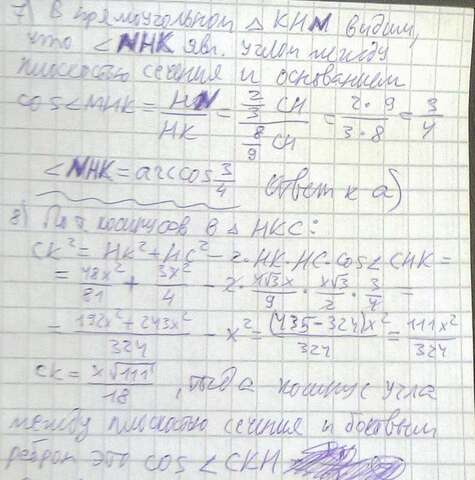 7) В прямоугольном △ KHN видим,
что ∠NHK явл. углом между
плоскостью сечения и основанием
cos∠NHK = HN/HK = (2/3 CH)/(8/9 CH) = (2·9)/(3·8) = 3/4
∠NHK = arccos 3/4 ответ к а)
8) По т. косинусов в △ HKC:
CK² = HK² + HC² − 2·HK·HC·cos∠CHK =
= 48x²/81 + 3x²/4 − 2·4√3x/9·x√3/2·3/4 =
= (192x² + 243x²)/324 − x² = (435−324)x²/324 = 111x²/324
CK = x√111/18, тогда косинус угла
между плоскостью сечения и боковым
ребром это cos∠CKH